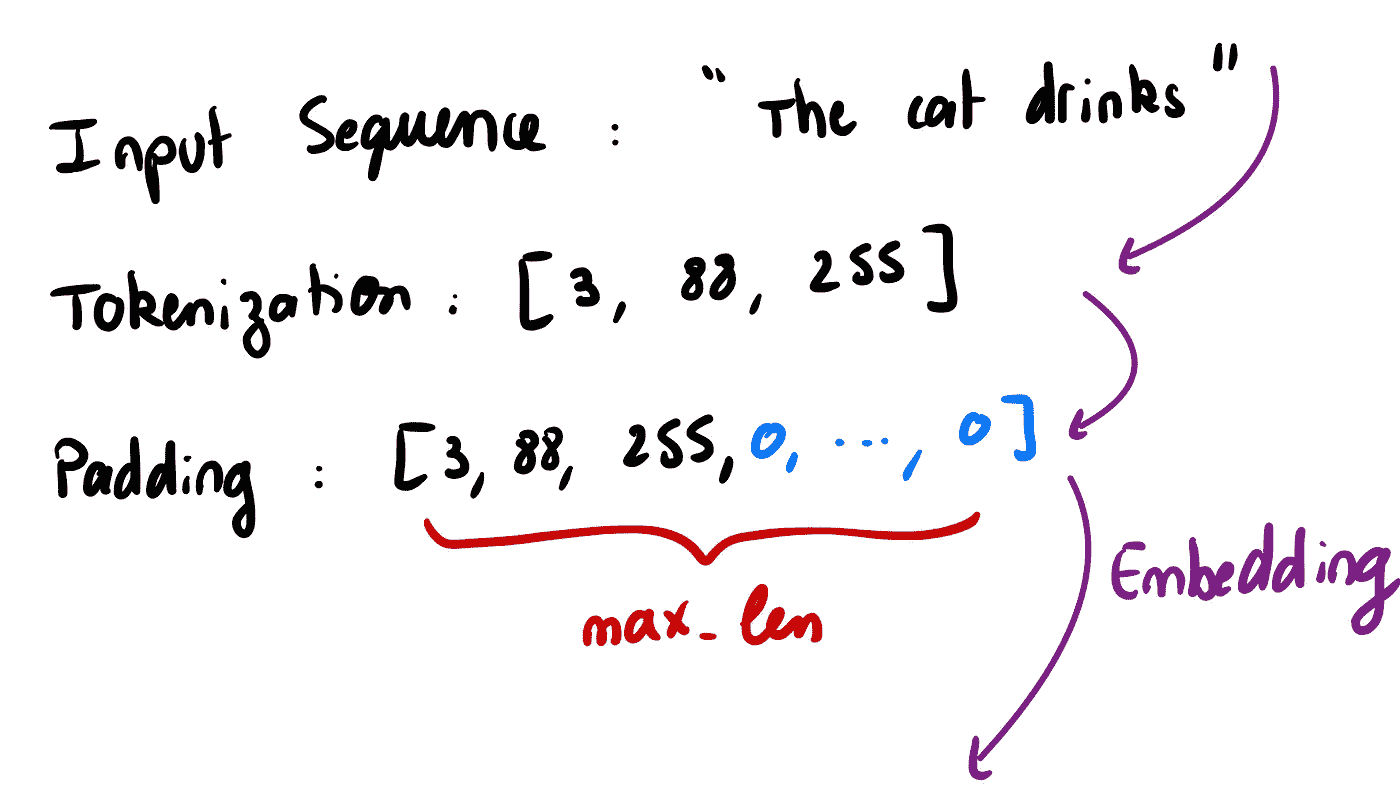 Input Sequence : "The cat drinks"
Tokenization : [3, 88, 255]
Padding : [3, 88, 255, 0, ..., 0]
Embedding
max_len